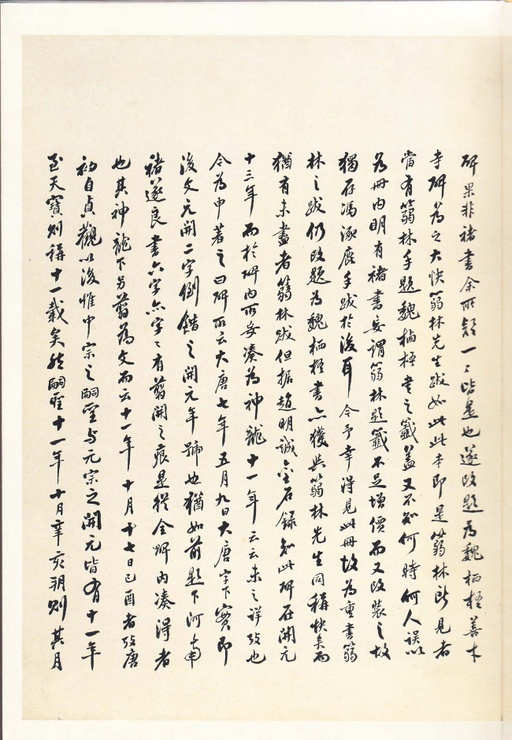 碑果非褚書余所疑一一皆是也遂改題為魏栖梧善才
寺碑為之大快蒻林先生跋如此此本即是蒻林所見者
當有蒻林手題魏栖梧書之籤蓋又不知何時何人誤以
為冊內明有褚書妄謂蒻林題籤不足增價而又改裝之故
獨存馮涿鹿手跋於後耳今予幸得見此冊故為重書蒻
林之跋仍改題為魏栖梧書亦獲與蒻林先生同稱快矣而
猶有未盡者蒻林跋但據趙明誠金石錄知此碑在開元
十三年而於碑內所妄湊為神龍十一年云云未之詳攷也
今為申著之曰碑所云大唐七年五月九日大唐字下實即
後文元開二字倒錯之開元年號也猶如前題下河南
褚遂良書六字亦字字有翦開之痕是從全碑內湊得者
也其神龍下另翦為文而云十一年十月十七日己酉者攷唐
初自貞觀以後惟中宗之嗣聖与元宗之開元皆有十一年
至天寶則稱十一載矣然嗣聖十一年十月辛亥朔則其月